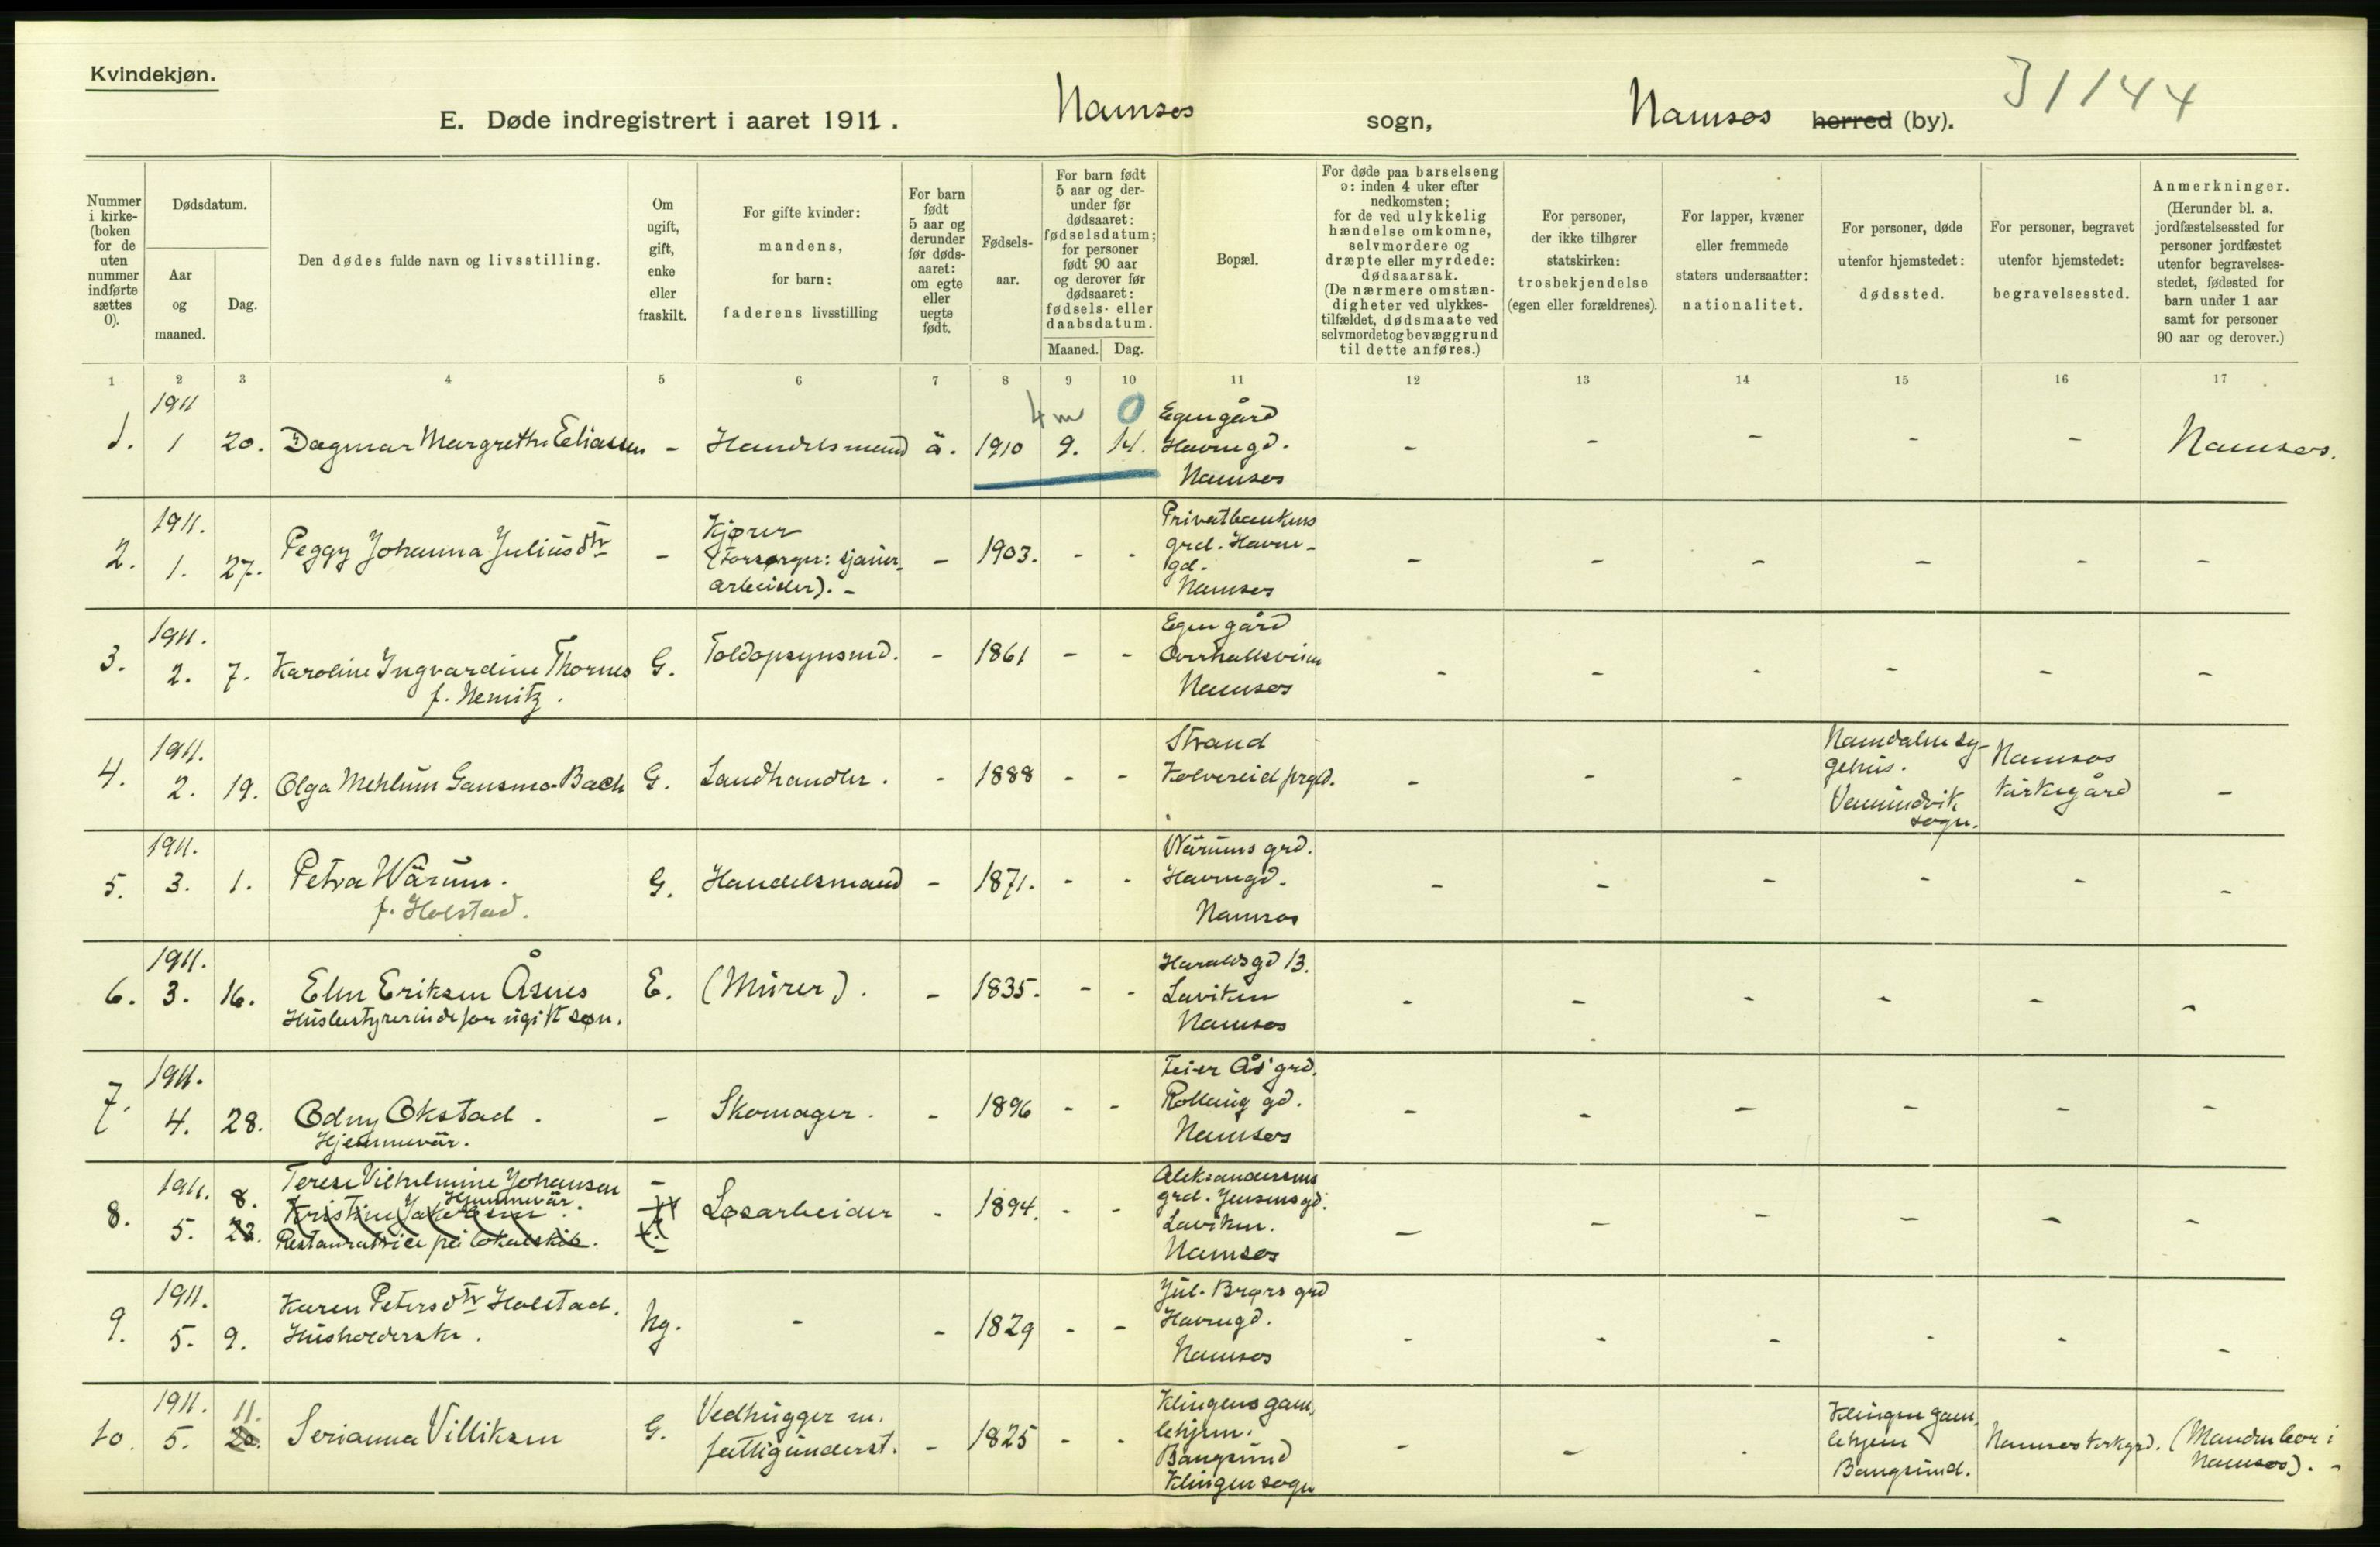 Kvindekjøn.
E. Døde indregistrert i aaret 1911. Namsos sogn, Namsos herred (by). 31144
Nummer i kirke- (boken for de uten nummer indførte sættes 0).
Dødsdatum.
Aar og maaned.
Dag.
Den dødes fulde navn og livsstilling.
Om ugift, gift, enke eller fraskilt.
For gifte kvinder: mandens, for barn: faderens livsstilling
For barn født 5 aar og derunder før døds- aaret: om egte eller uegte født.
Fødsels- aar.
For barn født 5 aar og der- under før dødsaaret: fødselsdatum; for personer født 90 aar og derover før dødsaaret: fødsels- eller daabsdatum.
Maaned. Dag.
Bopæl.
For døde paa barselseng ɔ: inden 4 uker efter nedkomsten; for de ved ulykkelig hændelse omkomne, selvmordere og dræpte eller myrdede: dødsaarsak. (De nærmere omstæn- digheter ved ulykkes- tilfældet, dødsmaate ved selvmordet og bevæggrund til dette anføres.)
For personer, der ikke tilhører statskirken: trosbekjendelse (egen eller forældrenes).
For lapper, kvæner eller fremmede staters undersaatter: nationalitet.
For personer, døde utenfor hjemstedet: dødssted.
For personer, begravet utenfor hjemstedet: begravelsessted.
Anmerkninger. (Herunder bl. a. jordfæstelsessted for personer jordfæstet utenfor begravelses- stedet, fødested for barn under 1 aar samt for personer 90 aar og derover.)
1 2 3 4 5 6 7 8 9 10 11 12 13 14 15 16 17
1. 1911 1 20. Dagmar Margrethe Eliassen - Handelsmand ä. 1910 4 m 9. 0 14. Egengård Havnegd. Namsos - - - - - Namsos.
2. 1911. 1. 27. Peggy Johanna Juliusdtr - Kjører (Forsørger: sjauer- arbeider). - - 1903. - - Privatbankens grd. Havne- gd. Namsos - - - - - -
3. 1911. 2. 7. Karoline Ingvardine Thornes f. Nemitz. G. Toldopsynsmd. - 1861 - - Egen gård Overhallsveien Namsos - - - - - -
4. 1911. 2. 19. Olga Mehlum Gansmo-Bach G. Landhandler. - 1888 - - Strand Kolvereid prgld. - - - Namdalen sy- gehus. Vemundvik sogn. Namsos kirkegård -
5. 1911. 3. 1. Petra Wärum. f. Holstad. G. Handelsmand - 1871. - - Wärums grd. Havnegd. Namsos - - - - - -
6. 1911. 3. 16. Elen Eriksen Åsnes Husbestyrerinde for ugift søn. E. (Murer). - 1835. - - Haraldsgd 13. Laviken Namsos - - - - - -
7. 1911. 4. 28. Odny Okstad. Hjemmevär. - Skomager. - 1896 - - Feier Ås' grd. Namsos - - - - - -
8. 1911. 5. 8. 22. Terese Vilhelmine Johansen Hjemmevär. Kristine Jakobsen Restauratrice på lokalskib. - Løsarbeider - 1894. - - Aleksandersens grd. Jensensgd. Laviken. Namsos - - - - - -
9. 1911. 5. 9. Karen Petersdtr Holstad. Husholderske. Ug. - - 1829 - - Jul. Brørs grd Havnegd. Namsos - - - - - -
10. 1911. 5. 11. 20. Serianna Villiksen G. Vedhugger m. fattigunderst. - 1825 - - Klingens gam- lehjem. Bangsund Klingen sogn - - - Klingen gam- lehjem Bangsund. Namsos kirkgrd. (Manden bor i Namsos). -